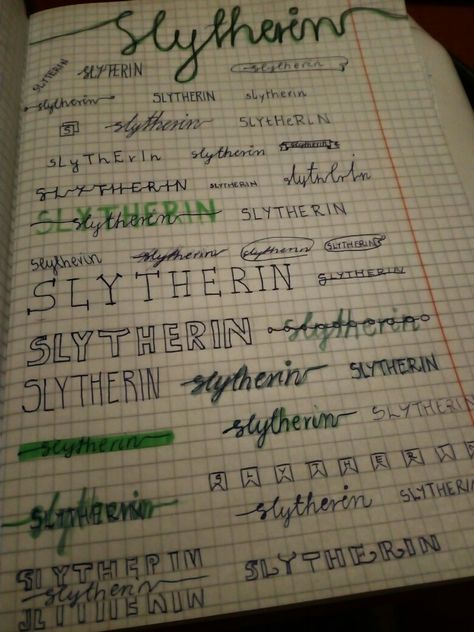 Slytherin
SLYTHERIN SLYTHERIN slytherin
slytherin SLYTHERIN slytherin
S slytherin SLYtHeRIN
sLyThErIn slytherin slytherin
SLYTHERIN SLYTHERIN
SLYTHERIN
slytherin SLYTHERIN
slytherin slytherin slytherin SLYTHERIN
SLYTHERIN SLYTHERIN
SLYTHERIN slytherin
SLYTHERIN slytherin SLYTHERIN
slytherin slytherin SLYTHERIN
S L Y T H E R I
SLYTHERIN slytherin SLYTHERIN
SLYTHERIN SLYTHERIN
slytherin